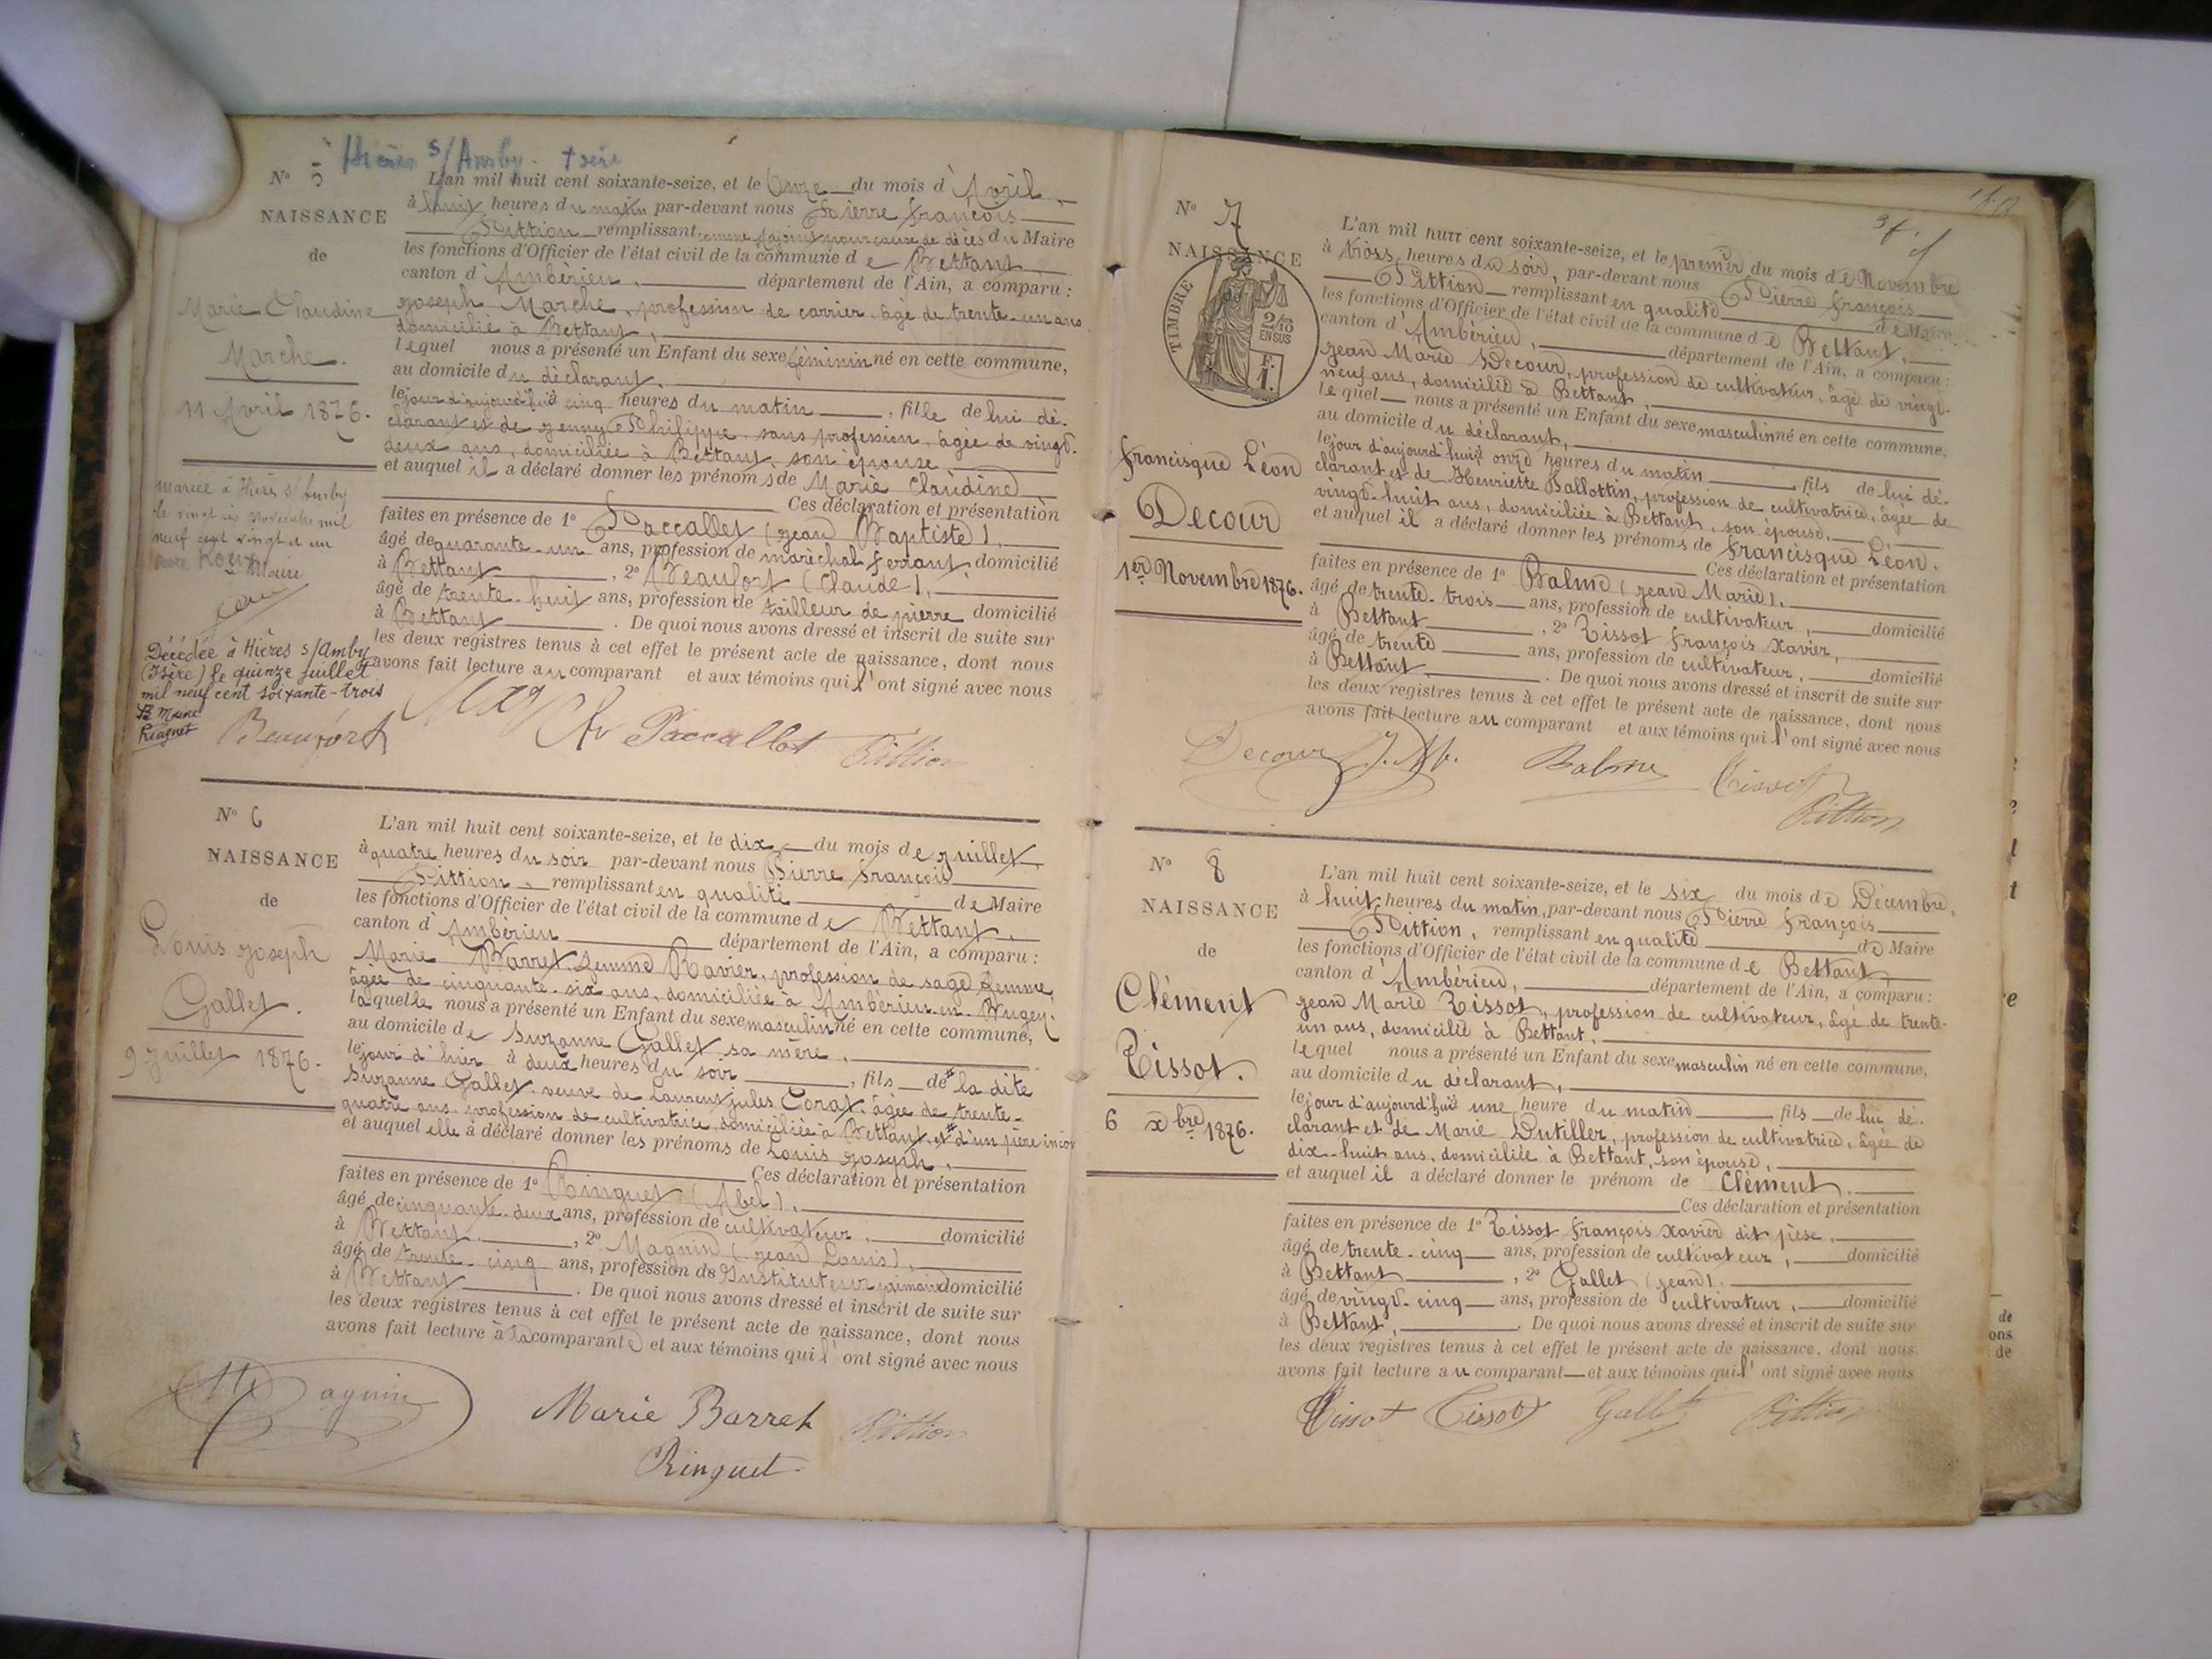 Hières s/Amby. Isère
N° 5
NAISSANCE
de
Marie Claudine
Marche.
11 Avril 1876.
mariée à Hières s/ Amby
le vingt six novembre mil
neuf cent vingt et un
avec
Décédée à Hières s/Amby
(Isère) le quinze juillet
mil neuf cent soixante-trois
Le Maire
L'an mil huit cent soixante-seize, et le Onze du mois d'Avril
à huit heures du matin par-devant nous Pierre François
Pittion remplissant comme Adjoint pour cause de décès du Maire
les fonctions d'Officier de l'état civil de la commune de Bettant
canton d'Ambérieu, département de l'Ain, a comparu :
Joseph Marche, profession de carrier, âgé de trente-un ans
domicilié à Bettant,
lequel nous a présenté un Enfant du sexe féminin né en cette commune,
au domicile du déclarant,
le jour d'aujourd'hui à cinq heures du matin, fille de lui dé-
clarant et de Jenny Philippe, sans profession, âgée de vingt-
deux ans, domiciliée à Bettant, son épouse,
et auquel il a déclaré donner les prénoms de Marie Claudine
Ces déclaration et présentation
faites en présence de 1° Paccallet (Jean Baptiste),
âgé de quarante-un ans, profession de maréchal ferrant, domicilié
à Bettant, 2° Beaufort (Claude),
âgé de trente-huit ans, profession de tailleur de pierre domicilié
à Bettant. De quoi nous avons dressé et inscrit de suite sur
les deux registres tenus à cet effet le présent acte de naissance, dont nous
avons fait lecture au comparant et aux témoins qui l'ont signé avec nous
Beaufort Paccallet Pittion
N° 6
NAISSANCE
de
Louis Joseph
Gallet.
9 Juillet 1876.
L'an mil huit cent soixante-seize, et le dix du mois de Juillet
à quatre heures du soir par-devant nous Pierre François
Pittion, remplissant en qualité de Maire
les fonctions d'Officier de l'état civil de la commune de Bettant,
canton d'Ambérieu département de l'Ain, a comparu :
Marie Barret, femme Ravier, profession de sage femme,
âgée de cinquante-six ans, domiciliée à Ambérieu-en-Bugey,
laquelle nous a présenté un Enfant du sexe masculin né en cette commune,
au domicile de Suzanne Gallet sa mère,
le jour d'hier à deux heures du soir, fils de la dite
Suzanne Gallet veuve de Laurent Jules Corat, âgée de trente-
quatre ans, profession de cultivatrice, domiciliée à Bettant, et d'un père incon
et auquel elle a déclaré donner les prénoms de Louis Joseph,
Ces déclaration et présentation
faites en présence de 1° Ringuet (Abel),
âgé de cinquante-deux ans, profession de cultivateur, domicilié
à Bettant, 2° Magnin (Jean Louis),
âgé de trente-cinq ans, profession de Instituteur primaire domicilié
à Bettant. De quoi nous avons dressé et inscrit de suite sur
les deux registres tenus à cet effet le présent acte de naissance, dont nous
avons fait lecture à la comparante et aux témoins qui l'ont signé avec nous
Magnin Marie Barret Pittion
Ringuet
N° 7
NAISSANCE
TIMBRE
2/10
EN SUS
F.
1.
Francisque Léon
Decour
1er Novembre 1876.
L'an mil huit cent soixante-seize, et le premier du mois de Novembre
à trois heures du soir, par-devant nous Pierre François
Pittion remplissant en qualité de Maire
les fonctions d'Officier de l'état civil de la commune de Bettant,
canton d'Ambérieu, département de l'Ain, a comparu :
Jean Marie Decour, profession de cultivateur, âgé de vingt-
neuf ans, domicilié à Bettant,
lequel nous a présenté un Enfant du sexe masculin né en cette commune,
au domicile du déclarant,
le jour d'aujourd'hui à onze heures du matin fils de lui dé-
clarant et de Henriette Ballottin, profession de cultivatrice, âgée de
vingt-huit ans, domiciliée à Bettant, son épouse,
et auquel il a déclaré donner les prénoms de Francisque Léon.
Ces déclaration et présentation
faites en présence de 1° Balme (Jean Marie),
âgé de trente-trois ans, profession de cultivateur, domicilié
à Bettant, 2° Tissot François Xavier,
âgé de trente ans, profession de cultivateur, domicilié
à Bettant. De quoi nous avons dressé et inscrit de suite sur
les deux registres tenus à cet effet le présent acte de naissance, dont nous
avons fait lecture au comparant et aux témoins qui l'ont signé avec nous
Decour J. M. Balme Tissot
Pittion
N° 8
NAISSANCE
de
Clément
Tissot.
6 xbre 1876.
L'an mil huit cent soixante-seize, et le six du mois de Décembre,
à huit heures du matin, par-devant nous Pierre François
Pittion, remplissant en qualité de Maire
les fonctions d'Officier de l'état civil de la commune de Bettant
canton d'Ambérieu, département de l'Ain, a comparu :
Jean Marie Tissot, profession de cultivateur, âgé de trente-
un ans, domicilié à Bettant,
lequel nous a présenté un Enfant du sexe masculin né en cette commune,
au domicile du déclarant,
le jour d'aujourd'hui à une heure du matin fils de lui dé-
clarant et de Marie Dutiller, profession de cultivatrice, âgée de
dix-huit ans, domiciliée à Bettant, son épouse,
et auquel il a déclaré donner le prénom de Clément.
Ces déclaration et présentation
faites en présence de 1° Tissot François Xavier dit pèse,
âgé de trente-cinq ans, profession de cultivateur, domicilié
à Bettant, 2° Gallet (Jean),
âgé de vingt-cinq ans, profession de cultivateur, domicilié
à Bettant, De quoi nous avons dressé et inscrit de suite sur
les deux registres tenus à cet effet le présent acte de naissance, dont nous
avons fait lecture au comparant et aux témoins qui l'ont signé avec nous
Tissot Tissot Gallet Pittion
de
ons
de